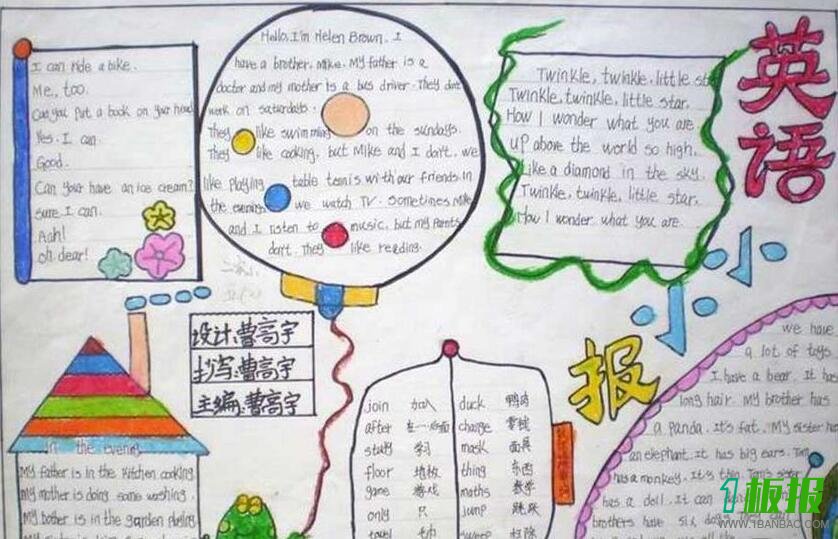 I can ride a bike.
Me, too.
Can you put a book on your head
Yes. I can.
Good.
Can your have an ice cream?
sure I can.
Aah!
oh dear!
Hello, I'm Helen Brown. I
have a brother, Mike. My father is a
doctor and my mother is a bus driver. They don't
work on saturdays.
They like swimming on the sundays.
They like cooking, but Mike and I don't. we
like playing table tennis with our friends. In
the evening we watch TV. Sometimes Mike
and I listen to music, but my Parents
don't. They like reading.
Twinkle, twinkle, little star
Twinkle, twinkle, little star,
How I wonder what you are
up above the world so high,
Like a diamond in the sky.
Twinkle, twinkle, little star,
How I wonder what you are
英语
小小
报
设计:曹高宇
抄写:曹高宇
主编:曹高宇
In the evening
My father is in the kitchen cooking
my mother is doing some washing.
My bother is in the garden playing
join 加入 duck 鸭肉
after 在…后面 change 零钱
study 学习 mask 面具
floor 地板 thing 东西
game 游戏 maths 数学
only 只 jump 跳跃
towel 毛巾 sweep 扫除
we have
a lot of toys.
I have a bear. It has
long hair. My brother has
a panda. It's fat. My sister has
an elephant. It has big ears. Tom
has a monkey. It's thin. Tom's sister
has a doll. It can
brothers have six
1板报
WWW.1BANBAO.COM